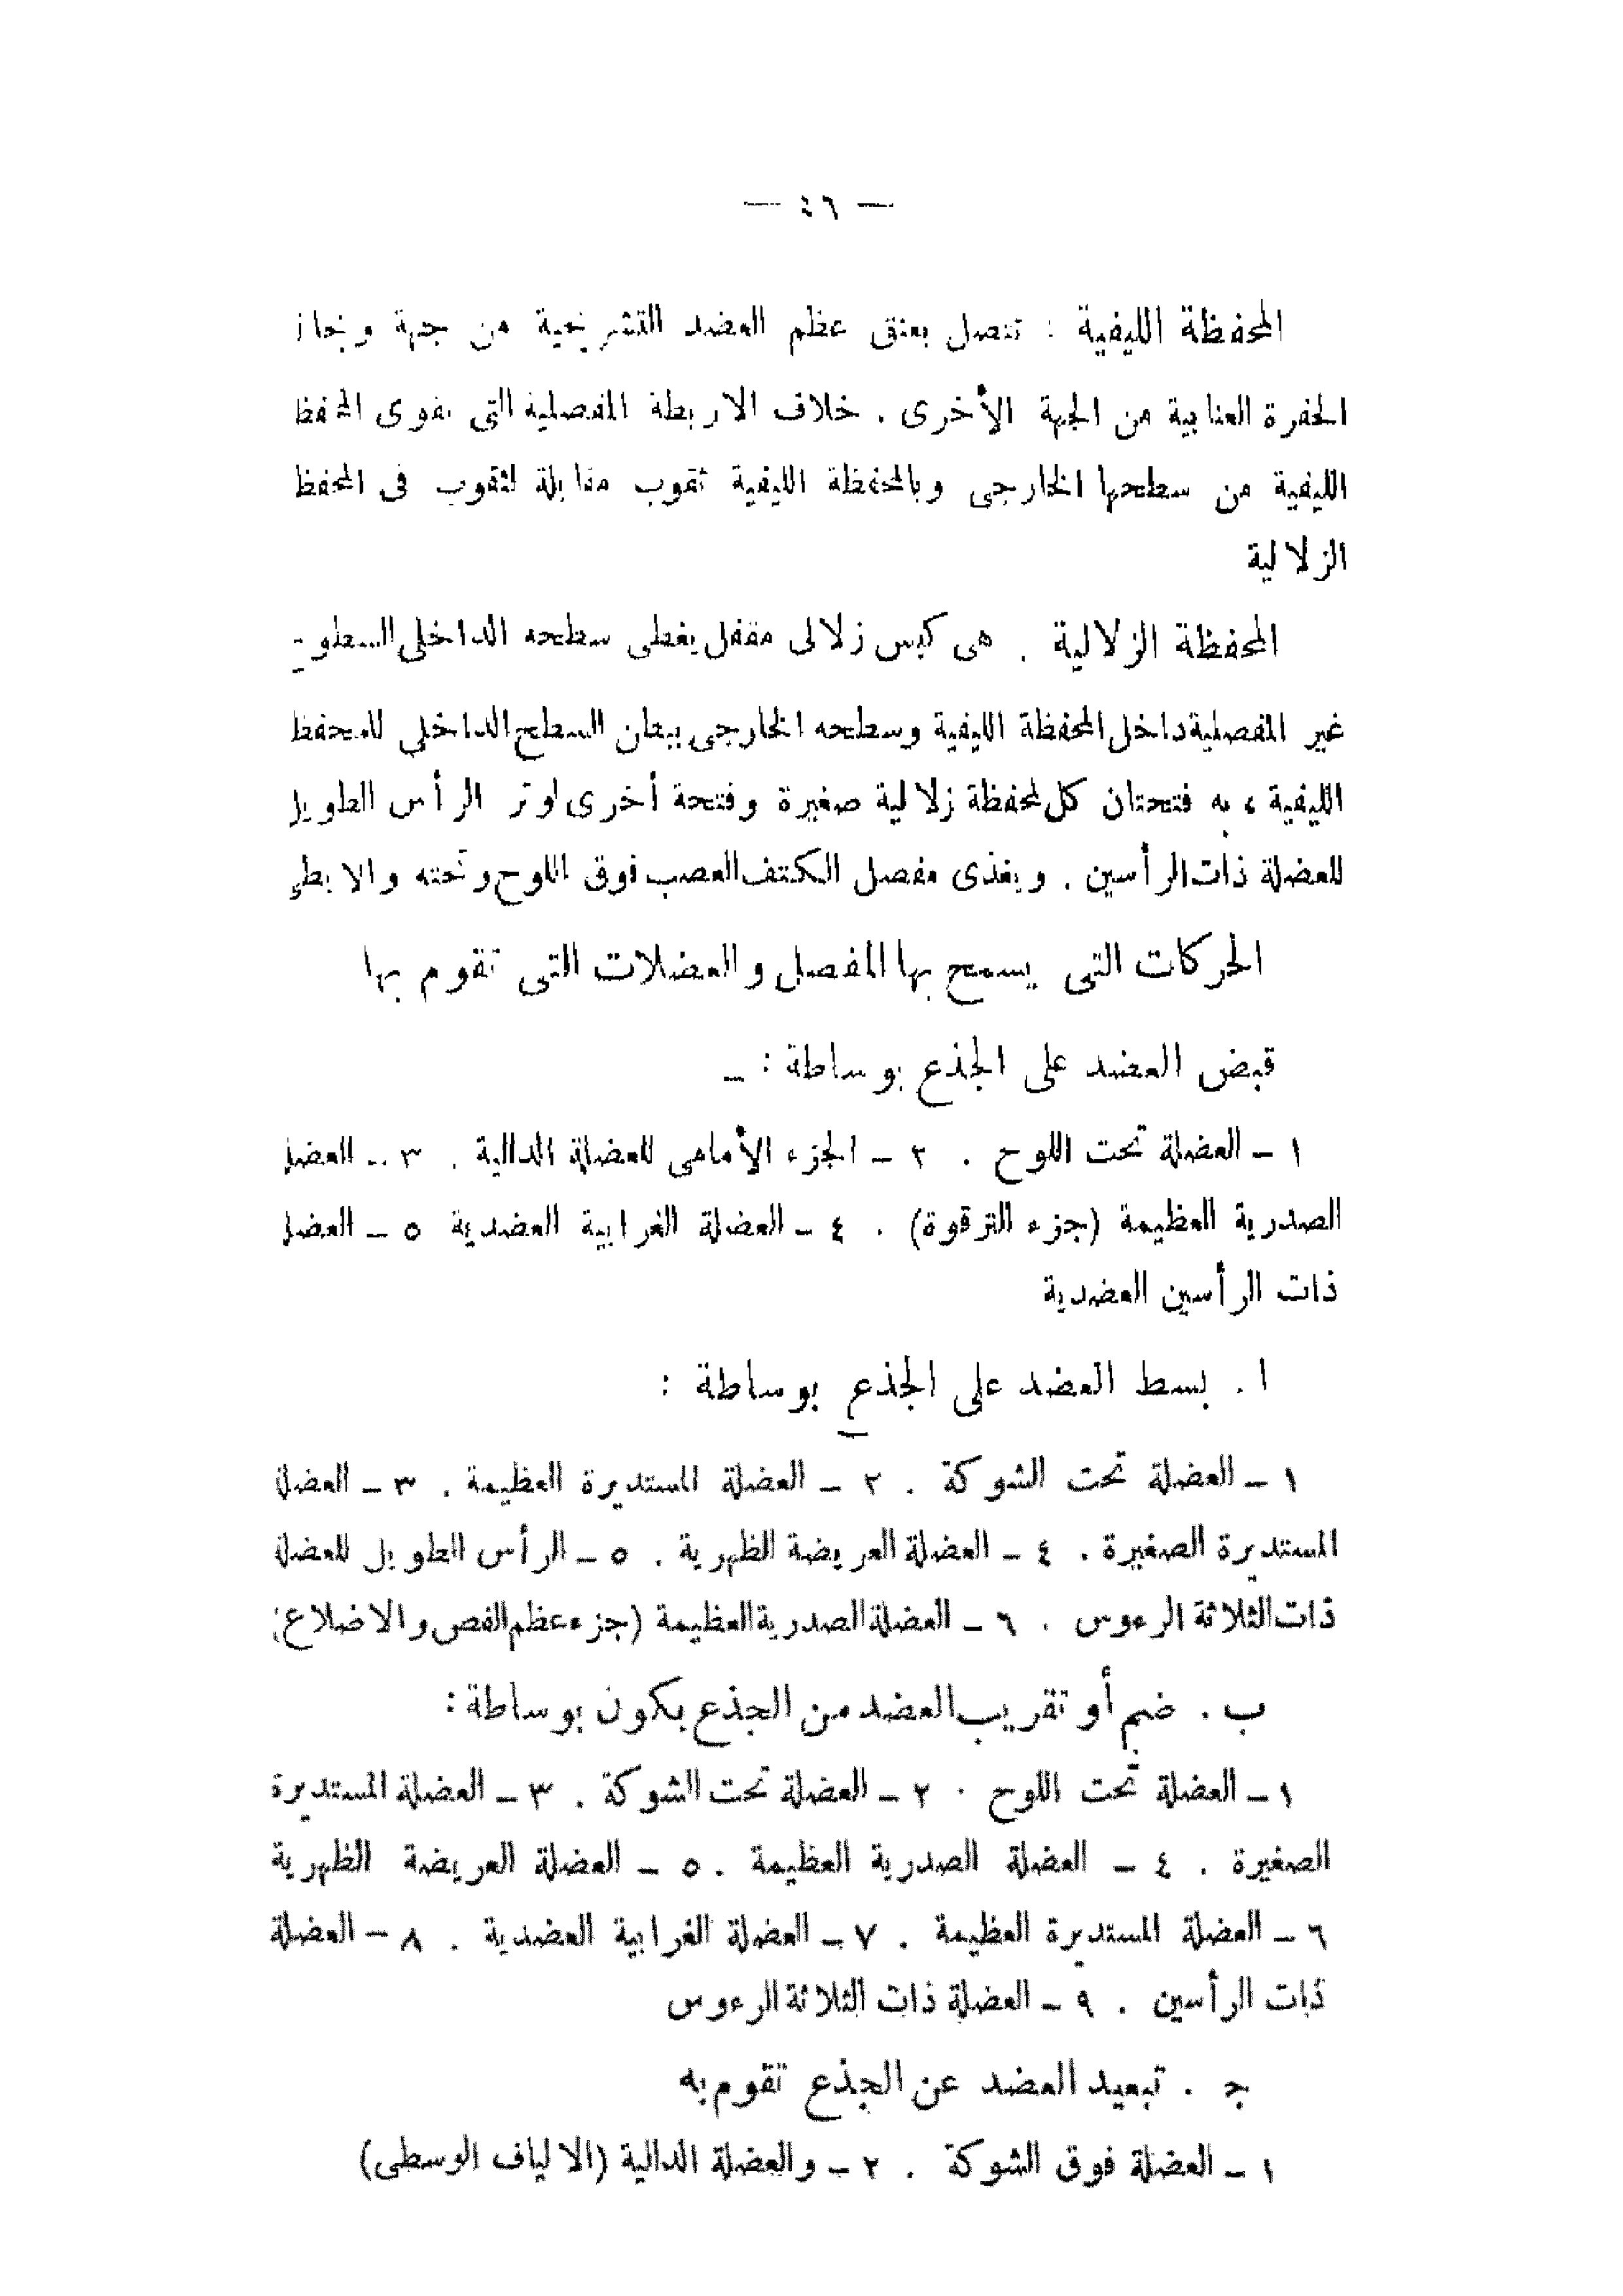 — ٤٦ —
المحفظة الليفية : تتصل بعنق عظم العضد التشريحية من جهة
الحفرة العنابية من الجهة الأخرى . خلاف الاربطة المفصلية التى تقوى
الليفية من سطحها الخارجى وبالمحفظة الليفية ثقوب مقابلة لثقوب فى
الزلالية
المحفظة الزلالية . هى كيس زلالى مقفل يغطى سطحه الداخلى
غير المفصلية داخل المحفظة الليفية وسطحه الخارجى يبطن السطح الداخلى
الليفية ، به فتحتان كل لمحفظة زلالية صغيرة وفتحة أخرى لوتر الرأس الطويل
للعضلة ذات الرأسين . ويغذى مفصل الكتف العصب فوق اللوح وتحته
الحركات التى يسمح بها المفصل والعضلات التى تقوم بها
قبض العضد على الجذع بوساطة : –
١ – العضلة تحت اللوح . ٢ – الجزء الأمامى للعضلة الدالية . ٣ –
الصدرية العظيمة (جزء الترقوة) . ٤ – العضلة الغرابية العضدية ٥ –
ذات الرأسين العضدية
ا . بسط العضد على الجذع بوساطة :
١ – العضلة تحت الشوكة . ٢ – العضلة المستديرة العظيمة . ٣ – العضلة
المستديرة الصغيرة . ٤ – العضلة العريضة الظهرية . ٥ – الرأس الطويل للعضلة
ذات الثلاثة الرءوس . ٦ – العضلة الصدرية العظيمة (جزء عظم القص والاضلاع)
ب . ضم أو تقريب العضد من الجذع يكون بوساطة :
١ – العضلة تحت اللوح . ٢ – العضلة تحت الشوكة . ٣ – العضلة المستديرة
الصغيرة . ٤ – العضلة الصدرية العظيمة . ٥ – العضلة العريضة الظهرية
٦ – العضلة المستديرة العظيمة . ٧ – العضلة الغرابية العضدية . ٨ – العضلة
ذات الرأسين . ٩ – العضلة ذات الثلاثة الرءوس
ج . تبعيد العضد عن الجذع تقوم به
١ – العضلة فوق الشوكة . ٢ – والعضلة الدالية (الالياف الوسطى)